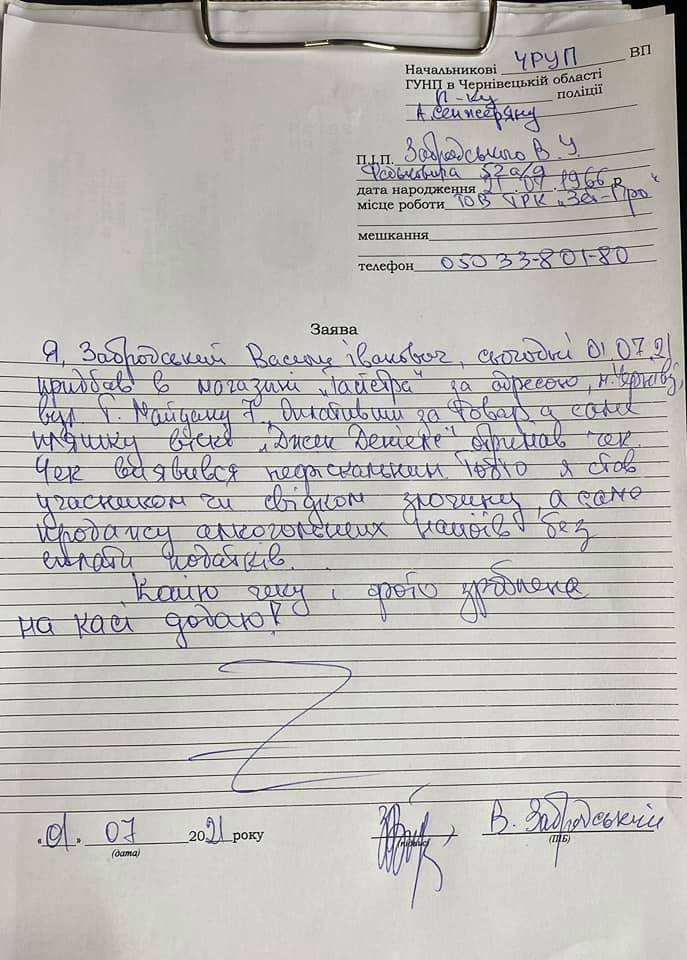 Начальникові ЧРУП ВП
ГУНП в Чернівецькій області
п-ку поліції
А. Сенжеряну
П.І.П. Забродського В. І.
52а/9
дата народження 21.07.1966 р.
місце роботи ТОВ ТРК
мешкання
телефон 050 33-801-80
Заява
Я, Забродський Василь Іванович, сьогодні 01.07.21
придбав в магазині за адресою м. Чернівці,
вул. Г. Майдану 7, оплативши за товар а саме
пляшку віскі „Джек Деніелс" отримав чек.
Чек виявився нефіскальним тобто я став
учасником чи свідком злочину, а саме
продажу алкогольних напоїв без
сплати податків.
Копію чеку і фото зроблене
на касі додаю!
«01» 07 2021 року
(дата)
(підпис)
В. Забродський
(ПІБ)